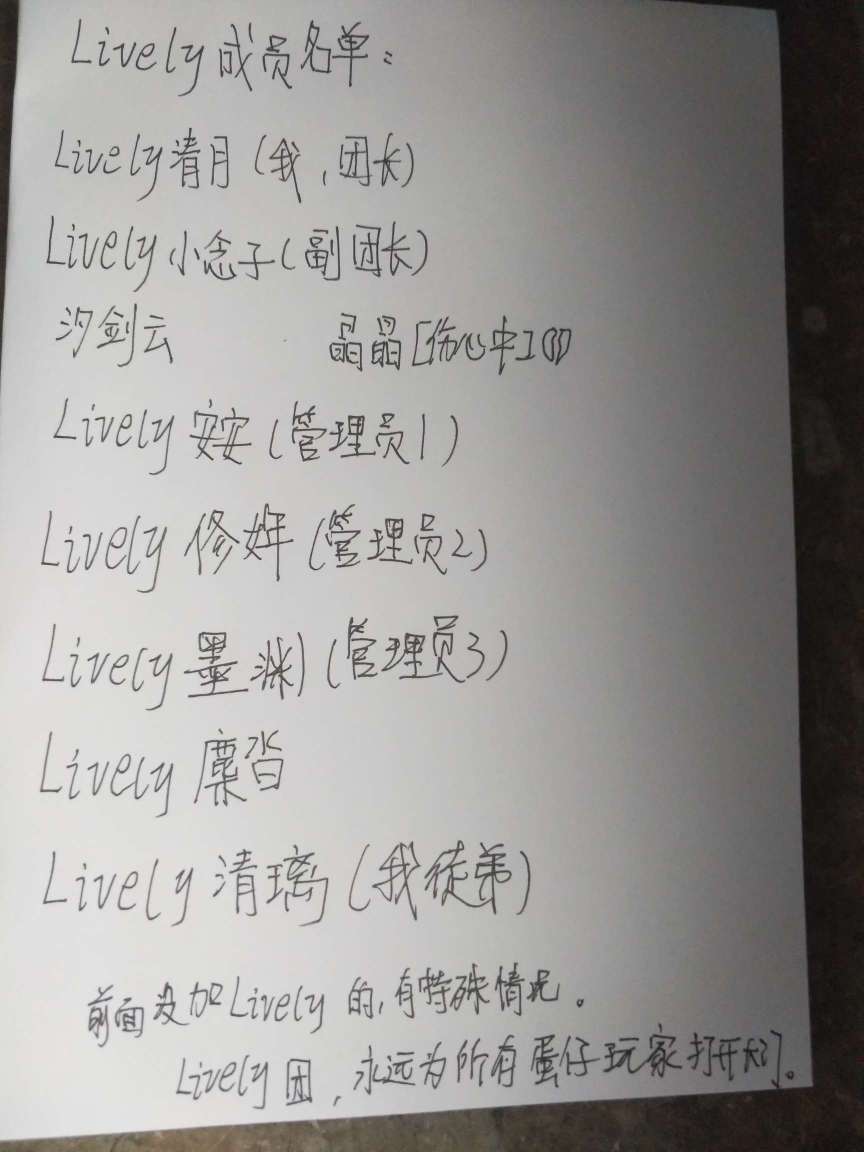 Lively成员名单：
Lively清月（我，团长）
Lively小念子（副团长）
汐剑云 晶晶[伤心中]
Lively安安（管理员1）
Lively修（管理员2）
Lively墨渊（管理员3）
Lively
Lively清璃（我徒弟）
前面没加Lively的，有特殊情况。
Lively团，永远为所有蛋仔玩家打开大门。